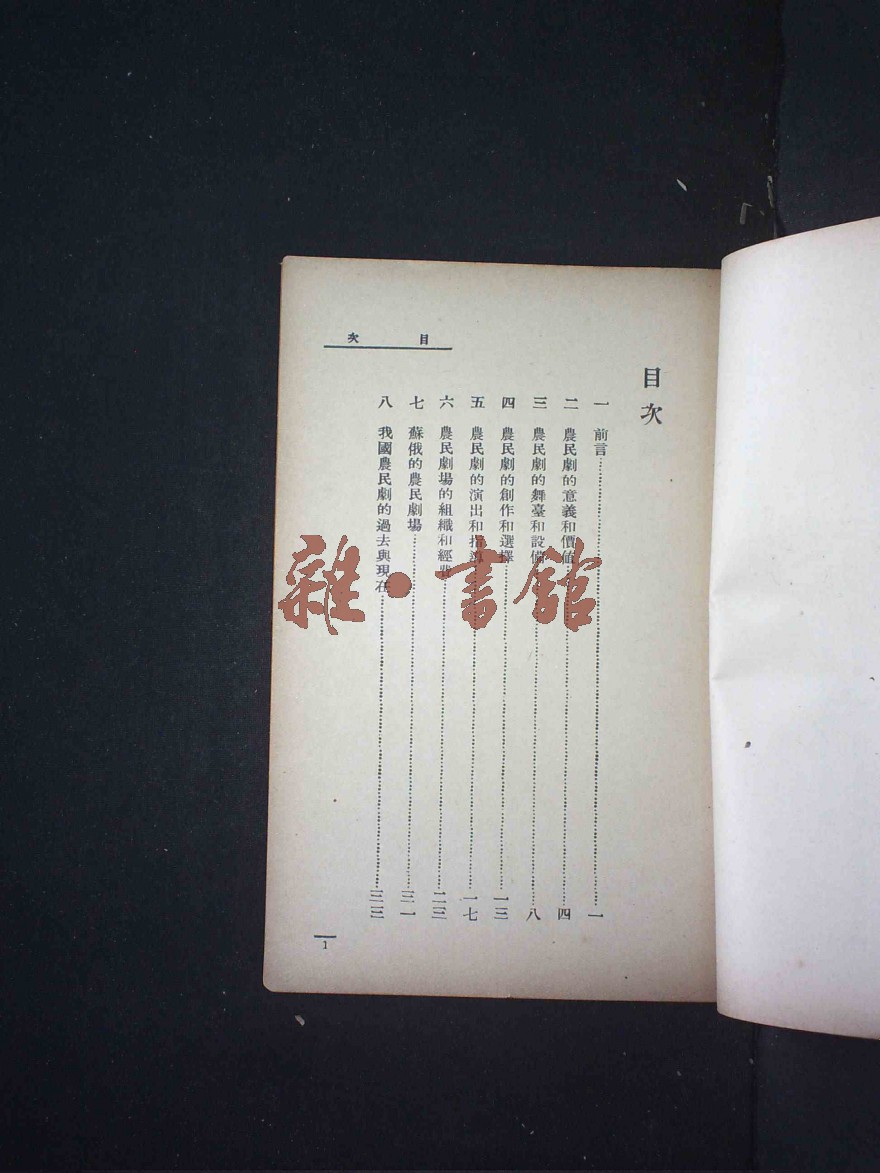 目次
目次
一 前言……一
二 農民劇的意義和價值……四
三 農民劇的舞臺和設備……八
四 農民劇的創作和選擇……一三
五 農民劇的演出和指導……一七
六 農民劇場的組織和經費……二三
七 蘇俄的農民劇場……三一
八 我國農民劇的過去與現在……三三
1
雜·書館